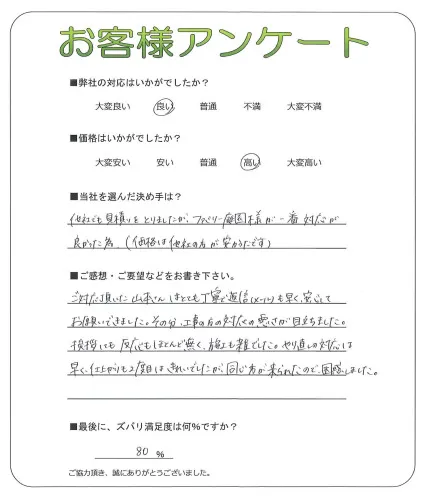 お客様アンケート
■弊社の対応はいかがでしたか？
大変良い 良い 普通 不満 大変不満
■価格はいかがでしたか？
大変安い 安い 普通 高い 大変高い
■当社を選んだ決め手は？
他社でも見積りをとりましたが、ファミリー庭園様が一番対応が
良かった為。(価格は他社の方が安かったです)
■ご感想・ご要望などをお書き下さい。
ご対応頂いた山本さんはとても丁寧で返信(メール)も早く、安心して
お願いできました。その分、工事の方の対応の悪さが目立ちました。
挨拶にも反応もほとんど無く、施工も雑でした。やり直しの対応は
早く、仕上がりも2度目はきれいでしたが、同じ方が来られたので、困惑しました。
■最後に、ズバリ満足度は何％ですか？
80 ％
ご協力頂き、誠にありがとうございました。